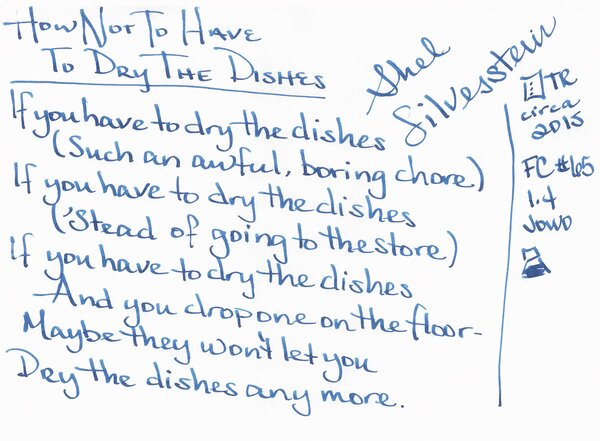 How Not To Have
To Dry The Dishes
Shel
Silversstein
If you have to dry the dishes
(Such an awful, boring chore)
If you have to dry the dishes
('Stead of going to the store)
If you have to dry the dishes
And you drop one on the floor-
Maybe they won't let you
Dry the dishes any more.
TR
circa
2015
FC #65
1.4
Jowo